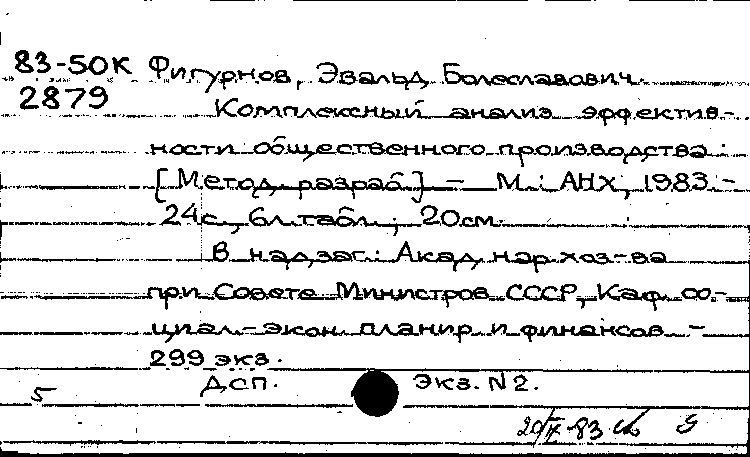 83-50К Фигурнов, Эвальд Болеславович.
2879 Комплексный анализ эффектив-
ности общественного производства :
[Метод. разраб.] – М. : АНХ, 1983. –
24 с., 6 л. табл. ; 20 см.
В надзаг.: Акад. нар. хоз-ва
при Совете Министров СССР, Каф. со-
циал.-экон. планир. и финансов. –
299 экз.
5 ДСП. Экз. N2.